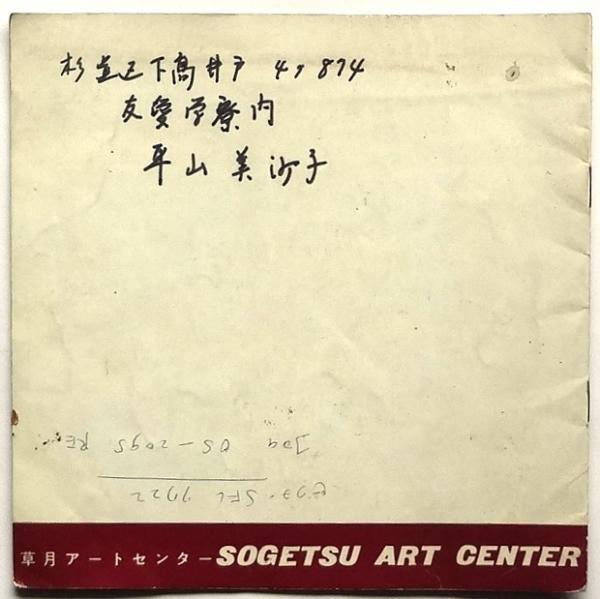 杉並区下高井戸 4ノ874
友愛学寮内
平山美沙子
ビクター SFL 7722
OS-2095
草月アートセンター SOGETSU ART CENTER